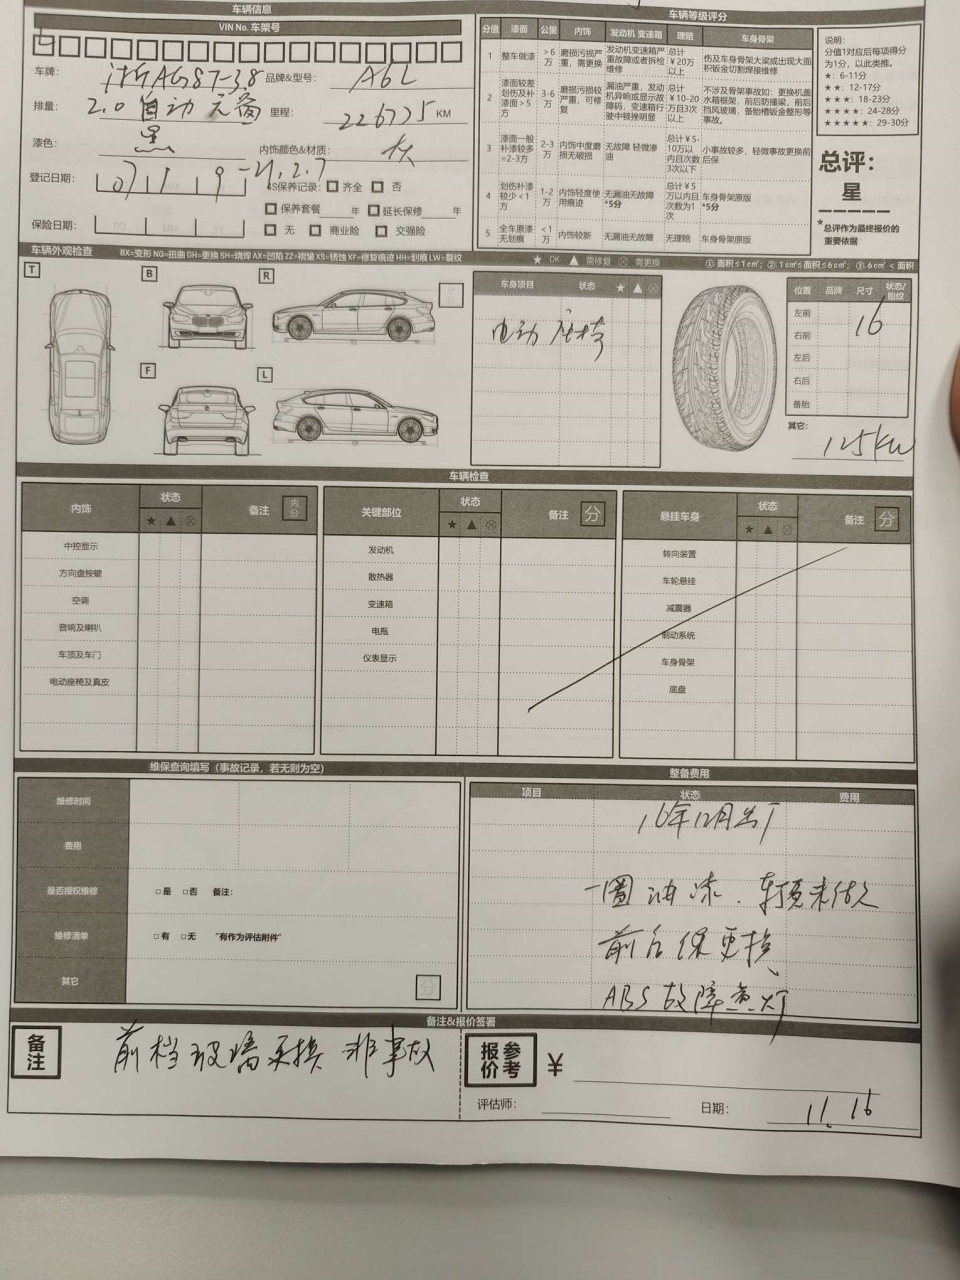 车辆信息
VIN No. 车架号
车牌: 浙AG8T38 品牌&型号: A6L
排量: 2.0 自动 里程: 226775 KM
漆色: 黑 内饰颜色&材质:
登记日期: 07 1 9 - 21.2.7
4S保养记录: 齐全 否
保养套餐 年 延长保修 年
保险日期: 无 商业险 交强险
车辆等级评分
分值 漆面 公里 内饰 发动机 变速箱 理赔 车身骨架
1 整车做漆 >6万 磨损污损严重,需更换 发动机变速箱严重故障或者拆检维修 总计¥20万以上 伤及车身骨架大梁或出现大面积钣金切割焊接维修
2 漆面较差划伤及补漆面>5 3-6万 磨损污损较严重,可修复 漏油严重,发动机异响或显示故障码,变速箱行驶中顿挫明显 总计¥10-20万且3次以上 不涉及骨架事故如:更换机盖水箱框架,前后防撞梁,前后挡风玻璃,备胎槽钣金整形等事故。
3 漆面一般补漆较多=2-3方 2-3万 内饰中度磨损无破损 无故障 轻微渗油 总计¥5-10万以内且次数3次以下 小事故较多,轻微事故更换前后保
4 划伤补漆较少<1方 1-2万 内饰轻度使用痕迹 无漏油无故障 *5分 总计¥5万以内且次数为1次 车身骨架原版 *5分
5 全车原漆无划痕 <1万 内饰较新 无漏油无故障 无理赔 车身骨架原版
说明:
分值1对应后每项得分为1分,以此类推。
★: 6-11分
★★: 12-17分
★★★: 18-23分
★★★★: 24-28分
★★★★★: 29-30分
总评:
星
*总评作为最终报价的重要依据
车辆外观检查 BX=变形 NQ=扭曲 GH=更换 SH=烧焊 AX=凹陷 ZZ=褶皱 XS=锈蚀 XF=修复痕迹 HH=划痕 LW=裂纹
★ OK ▲ 需修复 ⊗ 需更换 ①.面积≤1c㎡; ②.1c㎡≤面积≤6c㎡; ③.6c㎡<面积
T B R
F L
车身项目 状态 ★ ▲ ⊗
电动座椅
位置 品牌 尺寸 状态/胎纹
左前
右前 16
左后
右后
备胎
其它: 125kw
车辆检查
内饰 状态 ★ ▲ ⊗ 备注 内分
中控显示
方向盘按键
空调
音响及喇叭
车顶及车门
电动座椅及真皮
关键部位 状态 ★ ▲ ⊗ 备注 分
发动机
散热器
变速箱
电瓶
仪表显示
悬挂车身 状态 ★ ▲ ⊗ 备注 分
转向装置
车轮悬挂
减震器
制动系统
车身骨架
底盘
维保查询填写(事故记录,若无则为空)
维修时间
费用
是否授权维修 □是 □否 备注:
维修清单 □有 □无 "有作为评估附件"
其它 分
整备费用
项目 状态 费用
16年12月出厂
一圈油漆.车顶未做
前后保更换
ABS故障亮灯
备注&报价签署
备注 前档玻璃更换 非事故
参考报价 ¥
评估师: 日期: 11.16